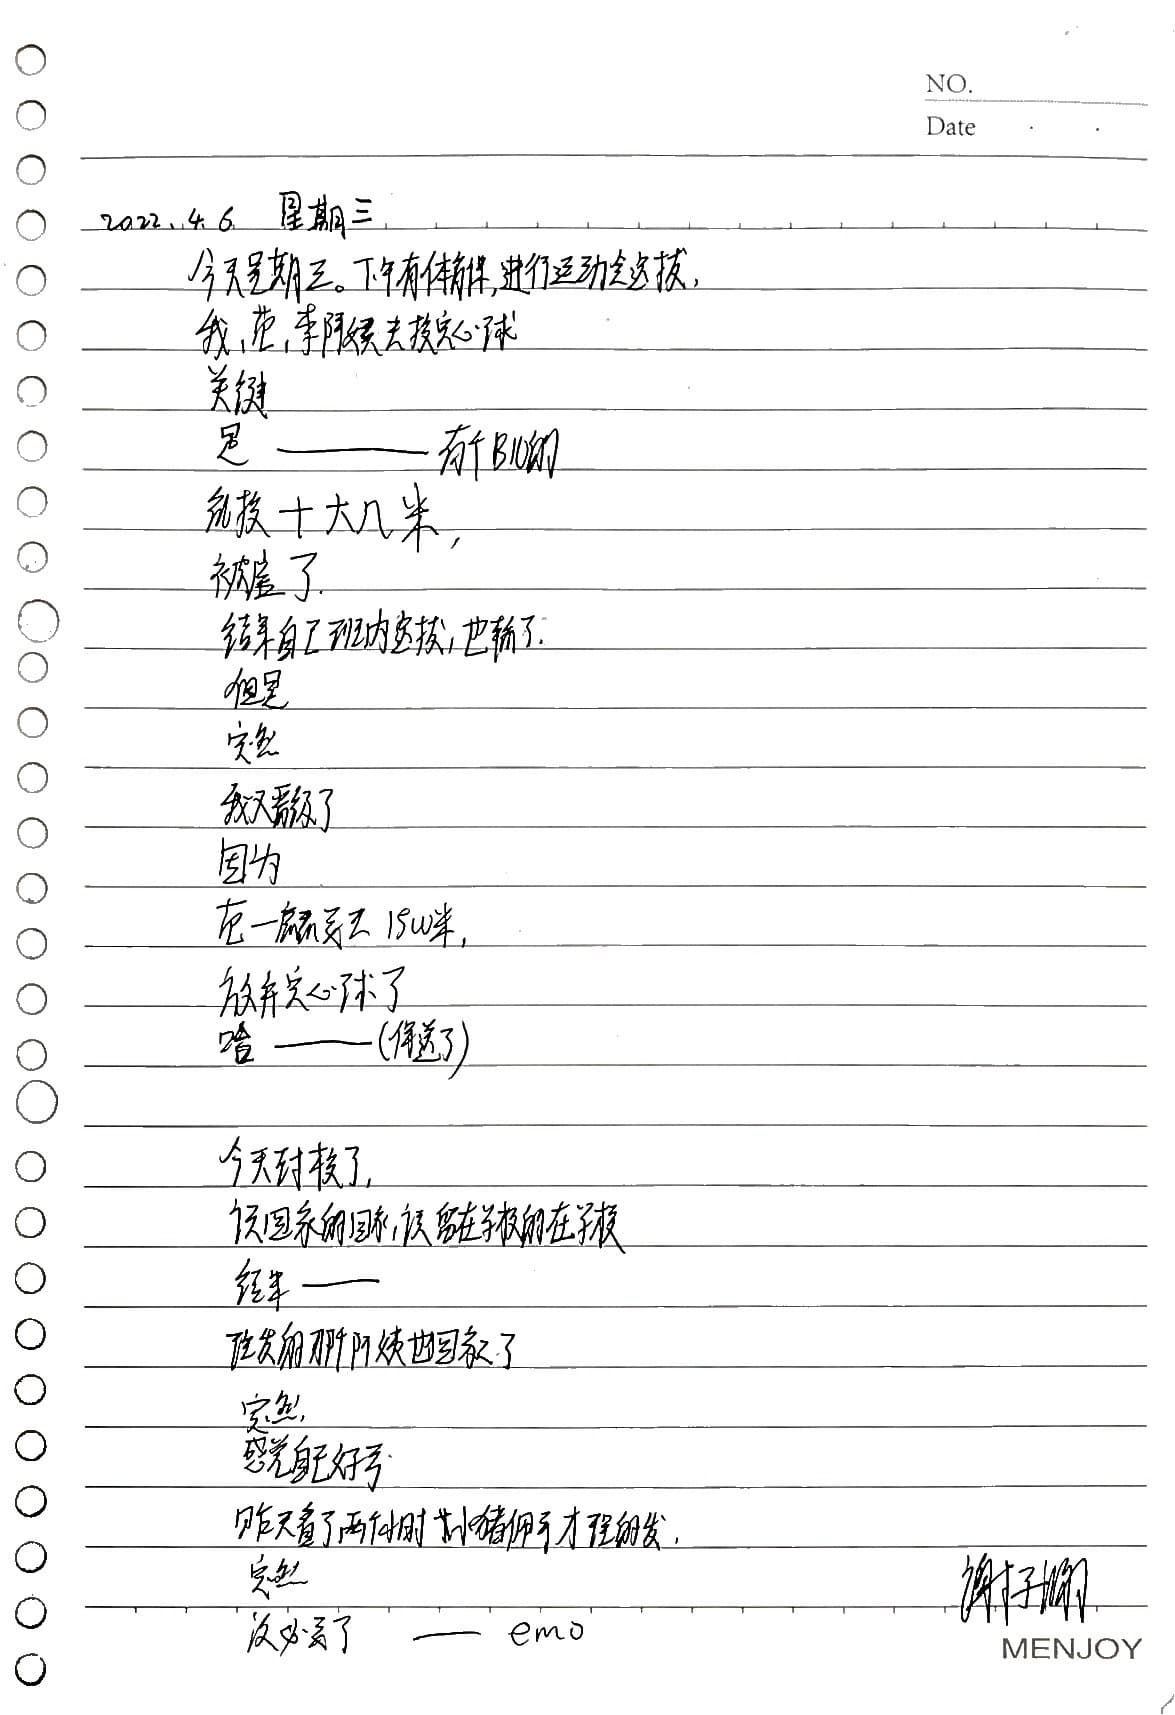 NO.
Date
2022.4.6 星期三
今天星期三。下午有体育课,进行运动会选拔,
我,范,李阿姨去投实心球
关键
是 —— 有个BIU的
就投十大几米,
被虐了.
结果自己班内选拔,也输了.
但是
突然
我又晋级了
因为
范一鹏要去1500米,
放弃实心球了
哈 ——(保送了)
今天封校了,
该回家的回家,该留在学校的在学校
结果 ——
理发的那个阿姨也回家了
突然,
感觉自己好亏
昨天看了两个小时 小猪佩奇才理的发.
突然
没必要了 —— emo
MENJOY